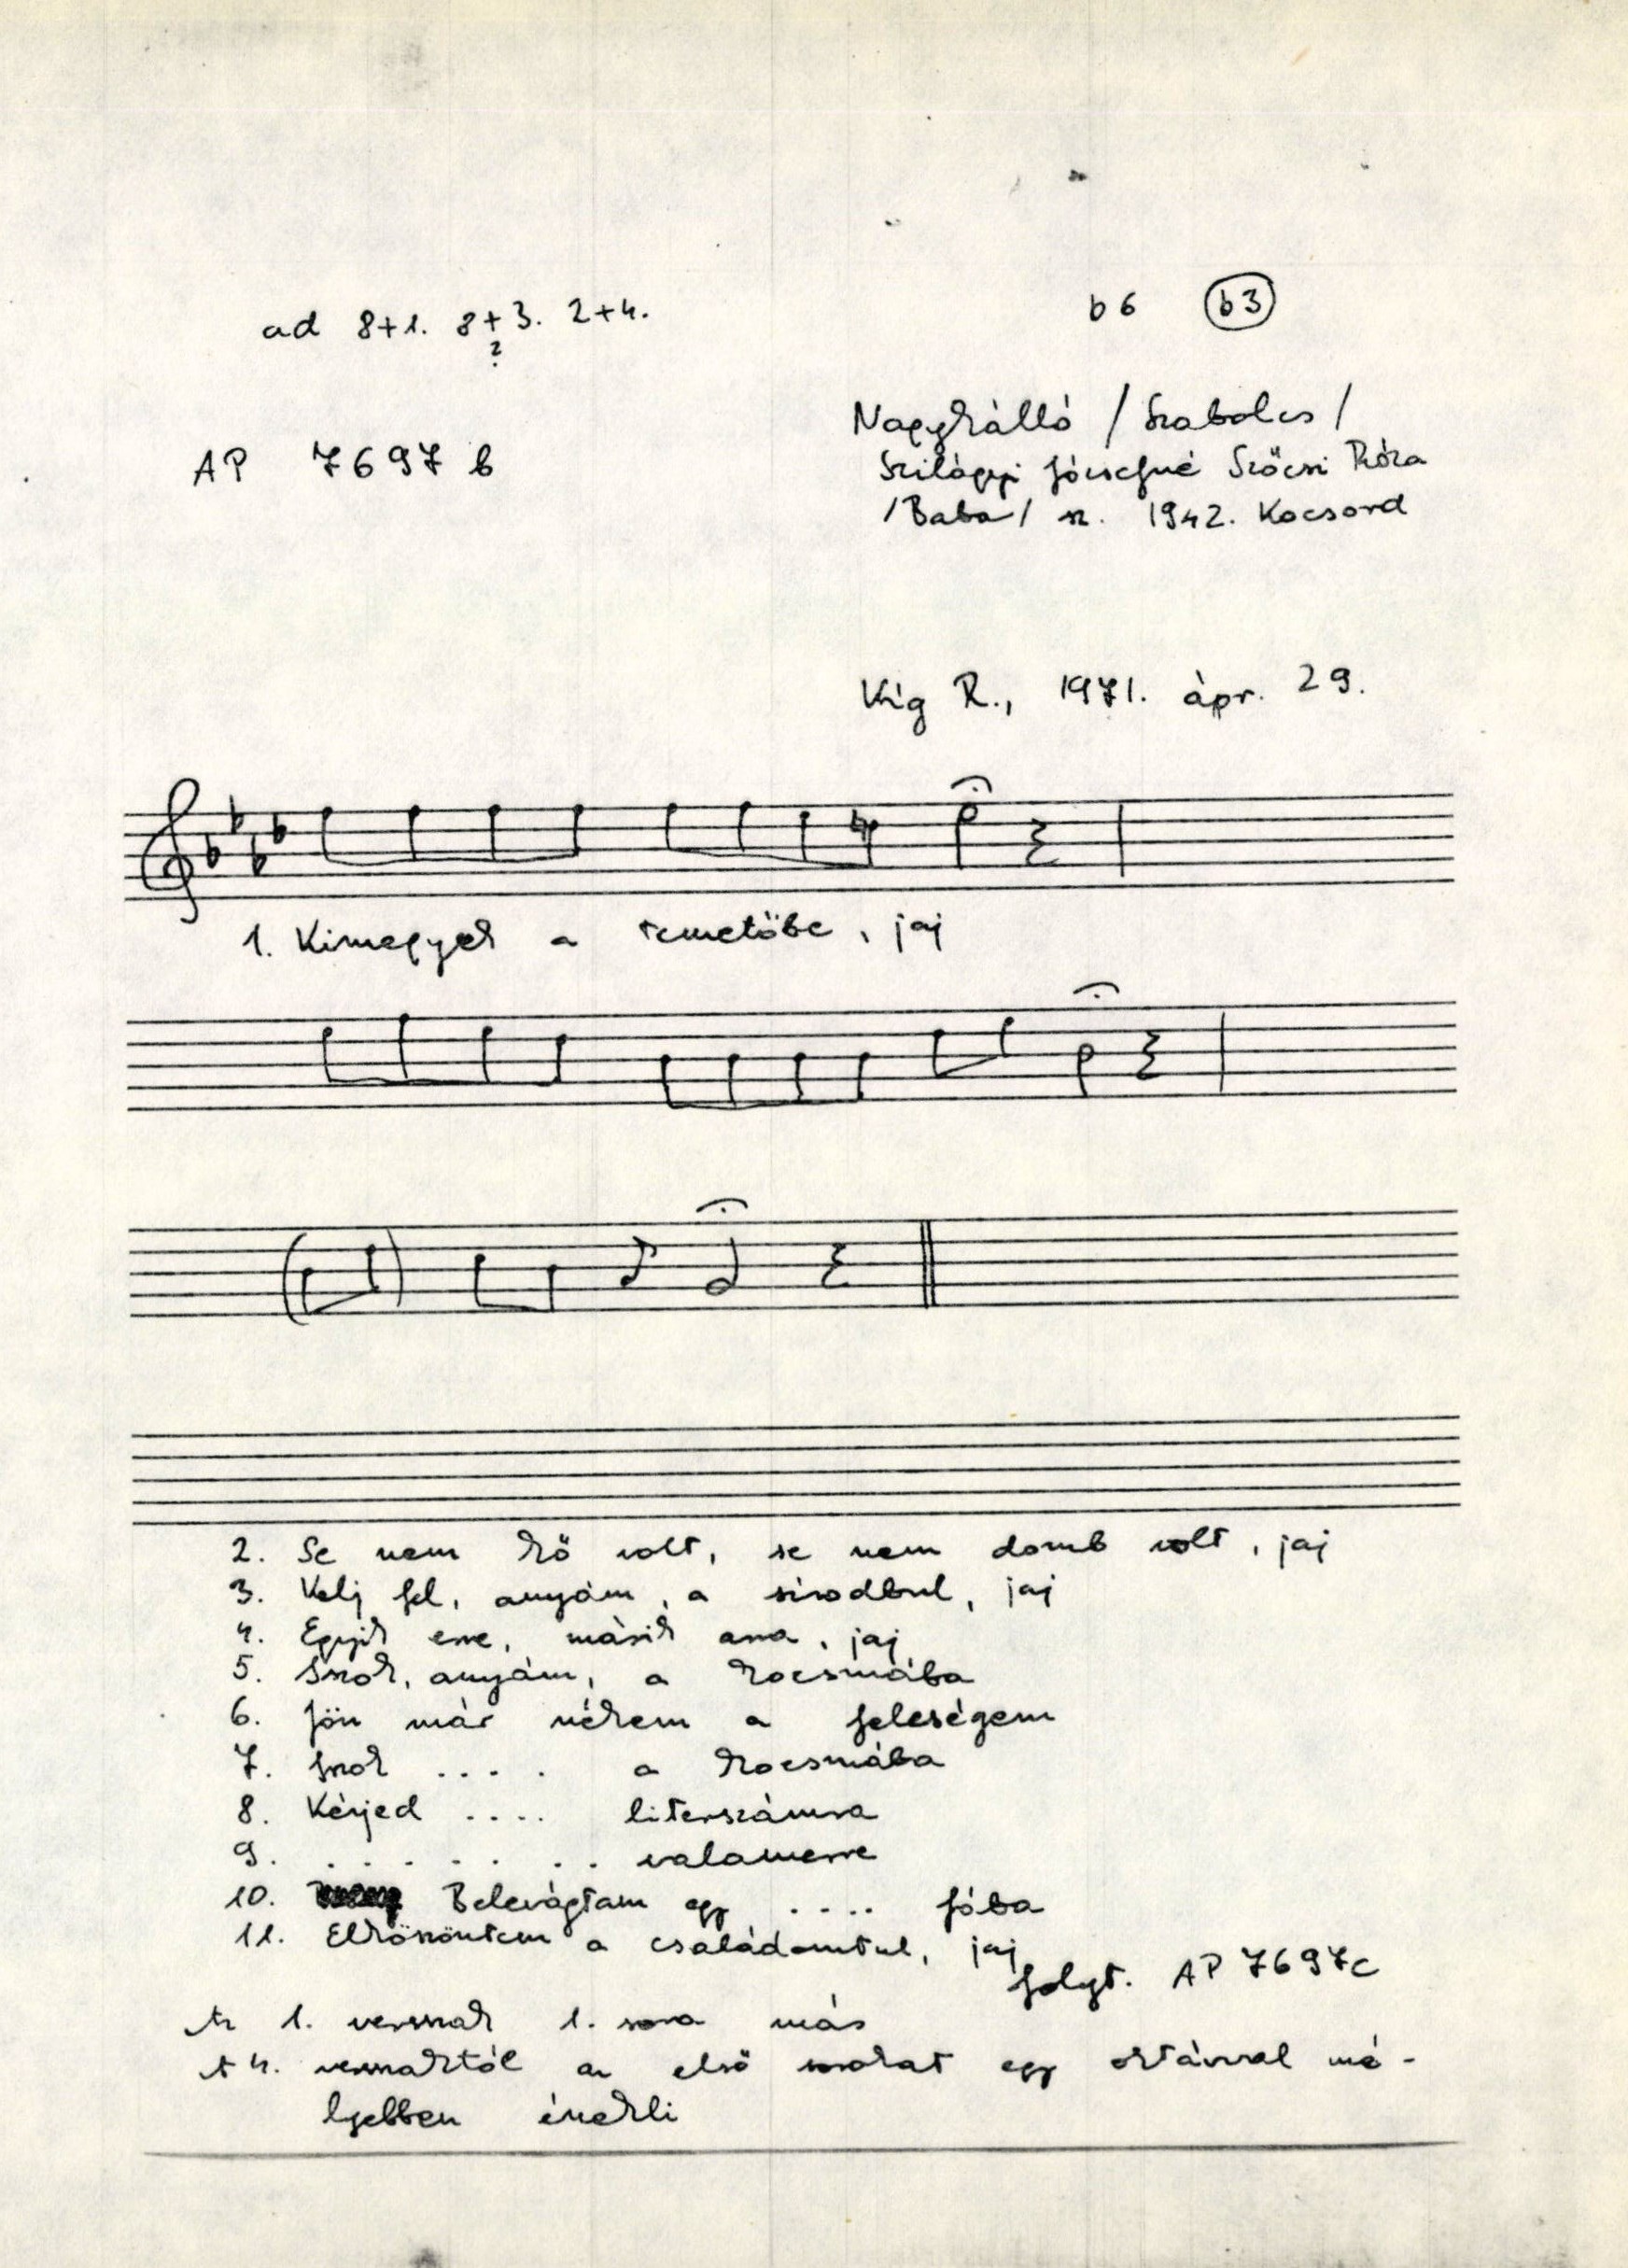 ad 8+1. 8+3. 2+4.
?
b6 b3
AP 7697 b
Nagykálló / Szabolcs /
Szilágyi Józsefné Szőcsi Róza
/Baba/ sz. 1942. Kocsord
Víg R., 1971. ápr. 29.
1. Kimegyek a temetőbe, jaj
2. Se nem kő volt, se nem domb volt, jaj
3. Kelj fel, anyám, a sirodbul, jaj
4. Egyik erre, másik arra, jaj
5. Iszok, anyám, a kocsmába
6. Jön már nékem a feleségem
7. Iszok .... a kocsmába
8. Kérjed .... literszámra
9. ....... valamerre
10. Belevágtam egy .... fába
11. Elköszöntem a családomtul, jaj
folyt. AP 7697c
Az 1. versszak 1. sora más
A 4. versszaktól az első sorokat egy oktávval mé-
lyebben énekli